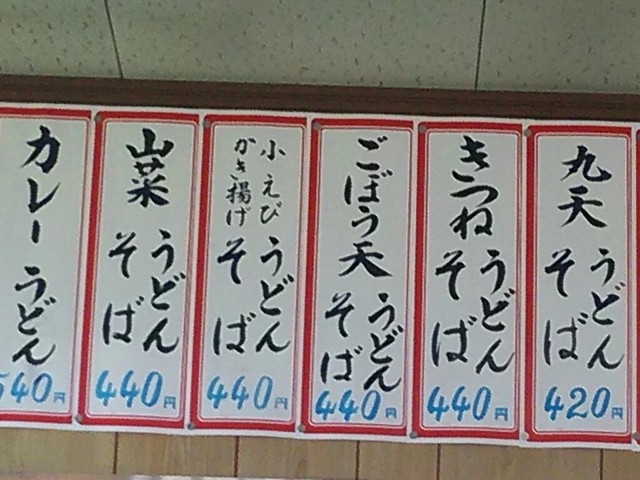 九天
うどん
そば
420円
きつね
うどん
そば
440円
ごぼう天
うどん
そば
440円
小えび
かき揚げ
うどん
そば
440円
山菜
うどん
そば
440円
カレーうどん
540円